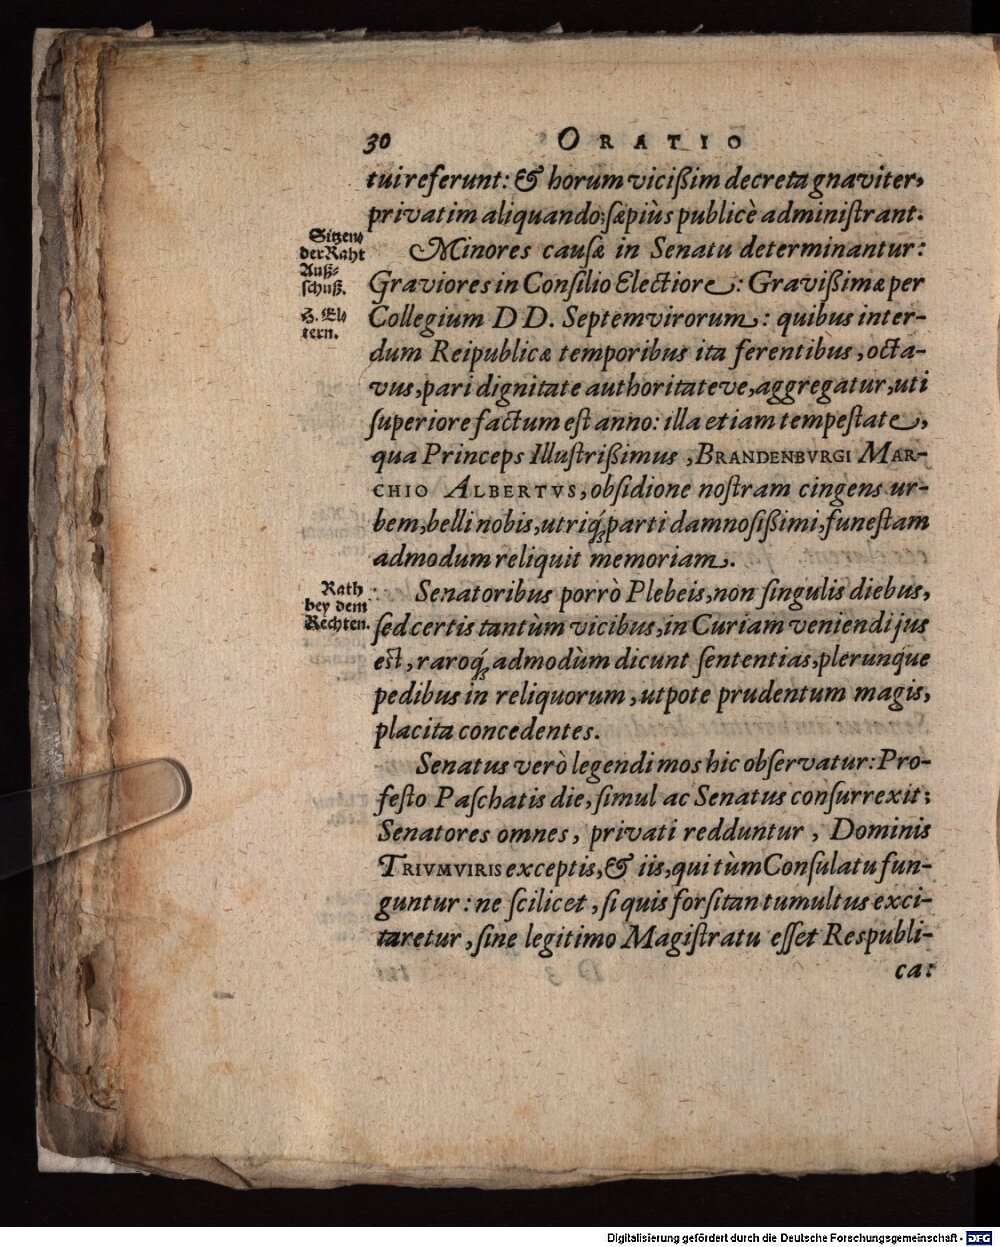 30 ORATIO
tui referunt: & horum vicißim decreta gnaviter,
privatim aliquando; sæpiùs publicè administrant.
Sitzen/
der Raht
Auß-
schuß.
H. El-
tern.
Minores causæ in Senatu determinantur:
Graviores in Consilio Electiore: Gravißimæ per
Collegium DD. Septemvirorum: quibus inter-
dum Reipublicæ temporibus ita ferentibus, octa-
vus, pari dignitate authoritateve, aggregatur, uti
superiore factum est anno: illa etiam tempestate,
qua Princeps Illustrißimus, BRANDENBVRGI MAR-
CHIO ALBERTVS, obsidione nostram cingens ur-
bem, belli nobis, utriq́; parti damnosißimi, funestam
admodum reliquit memoriam.
Rath
bey dem
Rechten.
Senatoribus porrò Plebeis, non singulis diebus,
sed certis tantùm vicibus, in Curiam veniendi jus
est, raroq́; admodùm dicunt sententias, plerunque
pedibus in reliquorum, utpote prudentum magis,
placita concedentes.
Senatus verò legendi mos hic observatur: Pro-
festo Paschatis die, simul ac Senatus consurrexit;
Senatores omnes, privati redduntur, Dominis
TRIVMVIRIS exceptis, & iis, qui tùm Consulatu fun-
guntur: ne scilicet, si quis forsitan tumultus exci-
taretur, sine legitimo Magistratu esset Respubli-
ca:
Digitalisierung gefördert durch die Deutsche Forschungsgemeinschaft - DFG